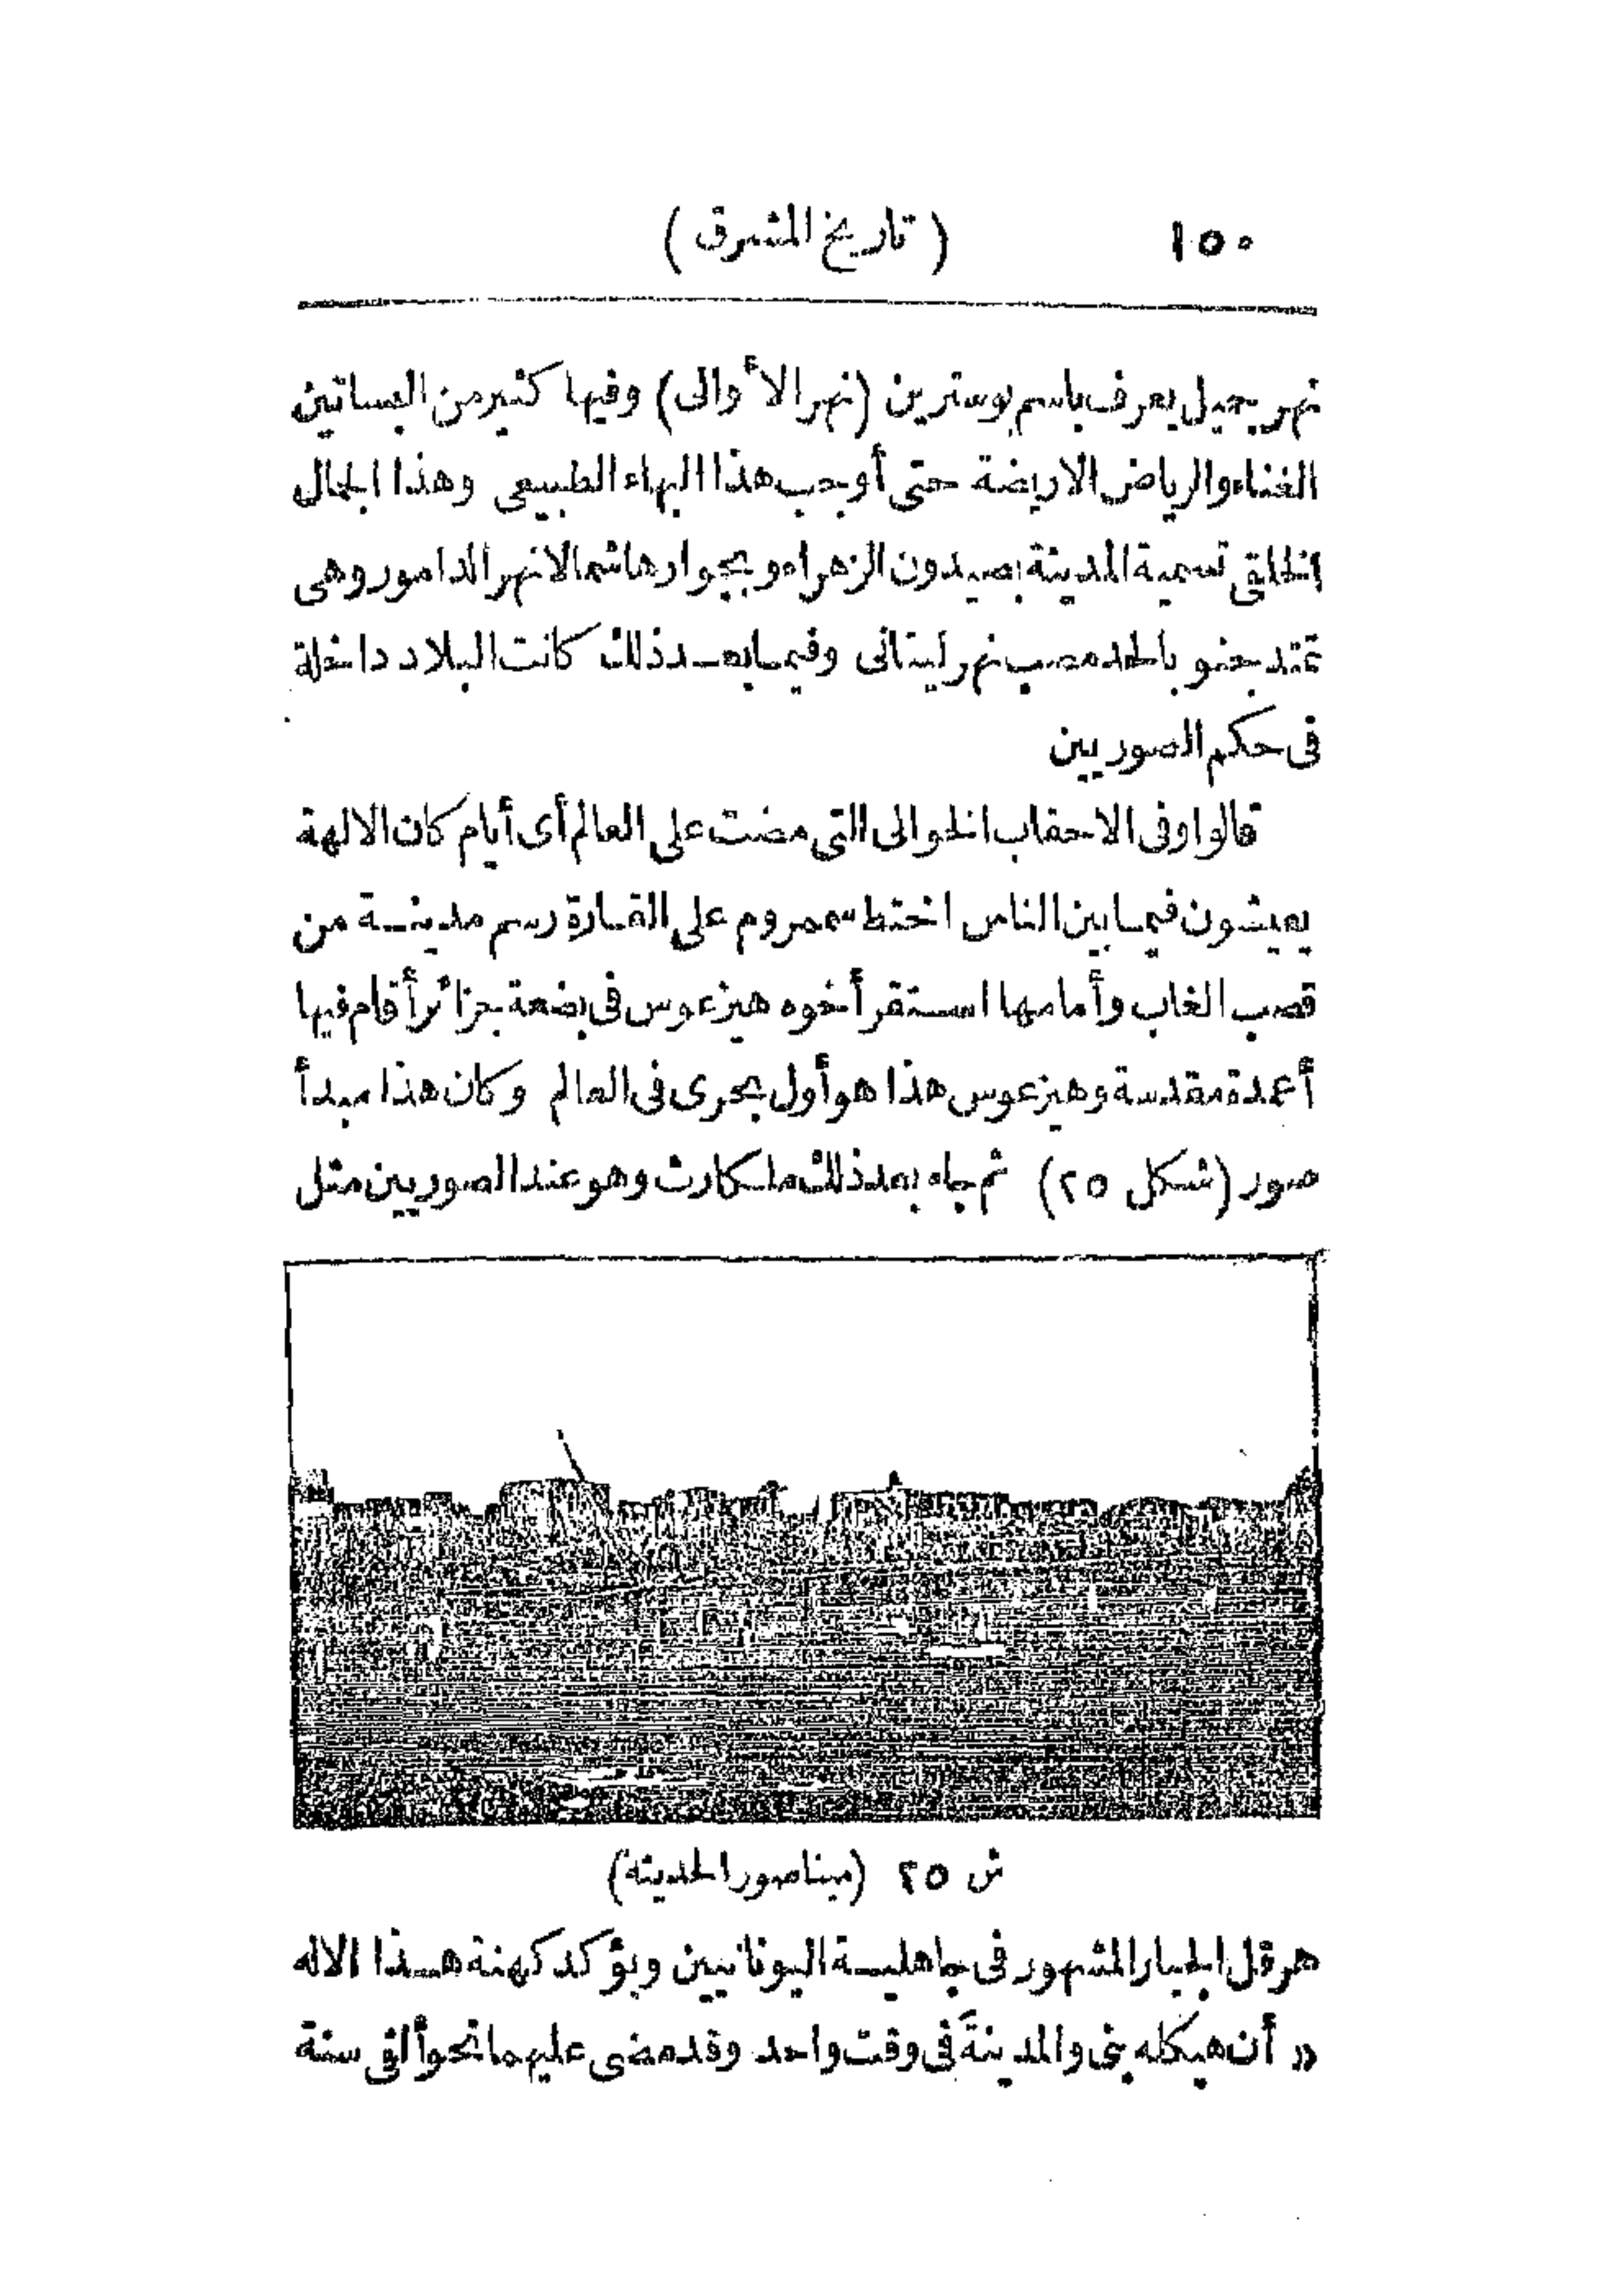 ١٥٠ ( تاريخ المشرق )
نهر جميل يعرف باسم بوسترين (نهر الأوالى) وفيها كثير من البساتين
الغناء والرياض الاريضة حتى أوجب هذا البهاء الطبيعى وهذا الجمال
الخلقى تسمية المدينة بصيدون الزهراء وبجوارها شمالا نهر الدامور وهى
تمتد جنوبا لحد مصب نهر ليتانى وفيما بعد ذلك كانت البلاد داخلة
فى حكم الصوريين
قالوا وفى الاحقاب الخوالى التى مضت على العالم أى أيام كان الالهة
يعيشون فيما بين الناس اختط سممروم على القارة رسم مدينة من
قصب الغاب وأمامها استقر أخوه هيزعوس فى بضعة جزائر أقام فيها
أعمدة مقدسة وهيزعوس هذا هو أول بحرى فى العالم وكان هذا مبدأ
صور (شكل ٢٥) ثم جاء بعد ذلك ملكارث وهو عند الصوريين مثل
ش ٢٥ (مينا صور الحديثة)
هرقل الجبار المشهور فى جاهلية اليونانيين ويؤكد كهنة هذا الاله
« أن هيكله بنى والمدينة فى وقت واحد وقد مضى عليهما نحو ألفى سنة